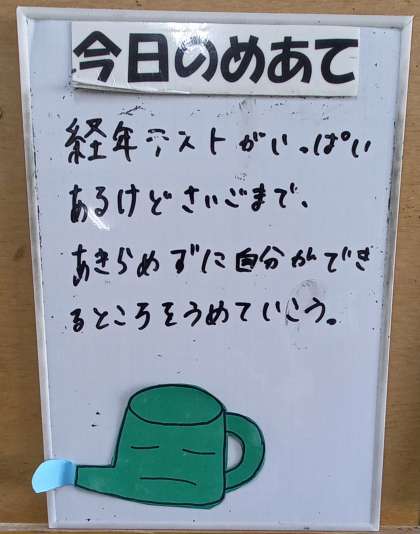 今日のめあて
経年テストがいっぱい
あるけどさいごまで、
あきらめずに自分ができ
るところをうめていこう。